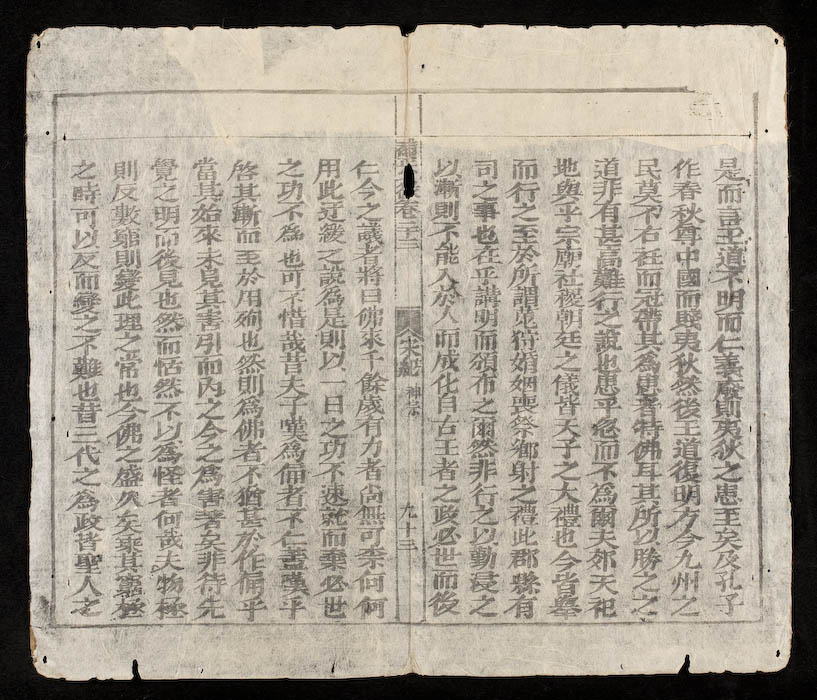 是而言王道不明而仁義廢則夷狄之患至矣及孔子
作春秋尊中國而賤夷狄然後王道復明方今九州之
民莫不右衽而冠帶其為患者特佛耳其所以勝之之
道非有甚高難行之說也患乎忽而不為爾夫郊天祀
地與乎宗廟社稷朝廷之儀皆天子之大禮也今皆舉
而行之至於所謂蒐狩婚姻喪祭鄉射之禮此郡縣有
司之事也在乎講明而頒布之爾然非行之以勤浸之
以漸則不能入於人而成化自古王者之政必世而後
宋紀 神宗 九十三
仁今之議者將曰佛來千餘歲有力者尚無可柰何何
用此迂緩之說為是則以一日之功不速就而棄必世
之功不為也可不惜哉昔夫子嘆為俑者不仁蓋嘆乎
啓其漸而至於用殉也然則為佛者不猶甚於作俑乎
當其始來未見其害引而內之今之為害著矣非待先
覺之明而後見也然而恬然不以為怪者何哉夫物極
則反數窮則變此理之常也今佛之盛久矣乘其窮極
之時可以反而變之不難也昔三代之為政皆聖人之